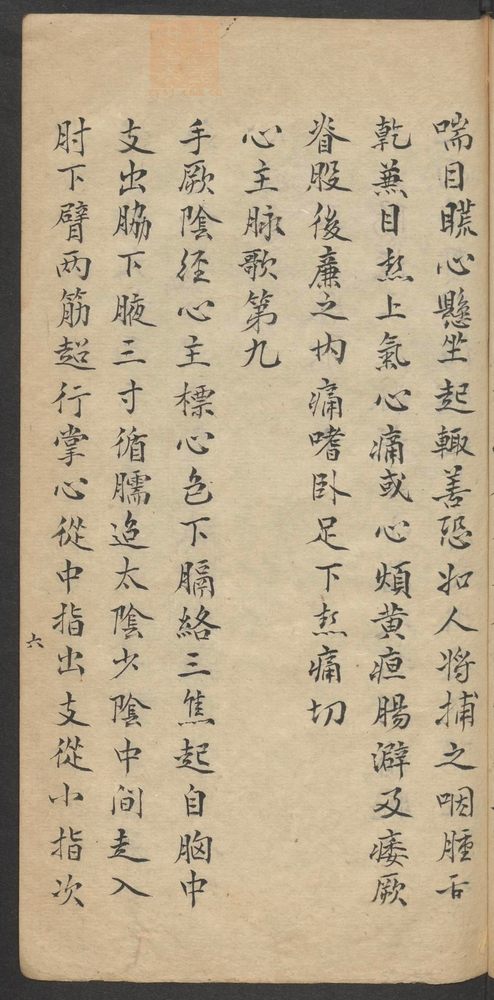 喘目䀮心懸坐起輙善恐如人将捕之咽腫舌
乾兼目𤍠上氣心痛或心煩黄疸腸澼及痿厥
脊股後廉之内痛嗜卧足下𤍠痛切
心主脉歌第九
手厥陰経心主標心包下膈絡三焦起自胸中
支出脇下腋三寸循臑迨太陰少陰中间走入
肘下臂两筋超行掌心従中指出支従小指次
六